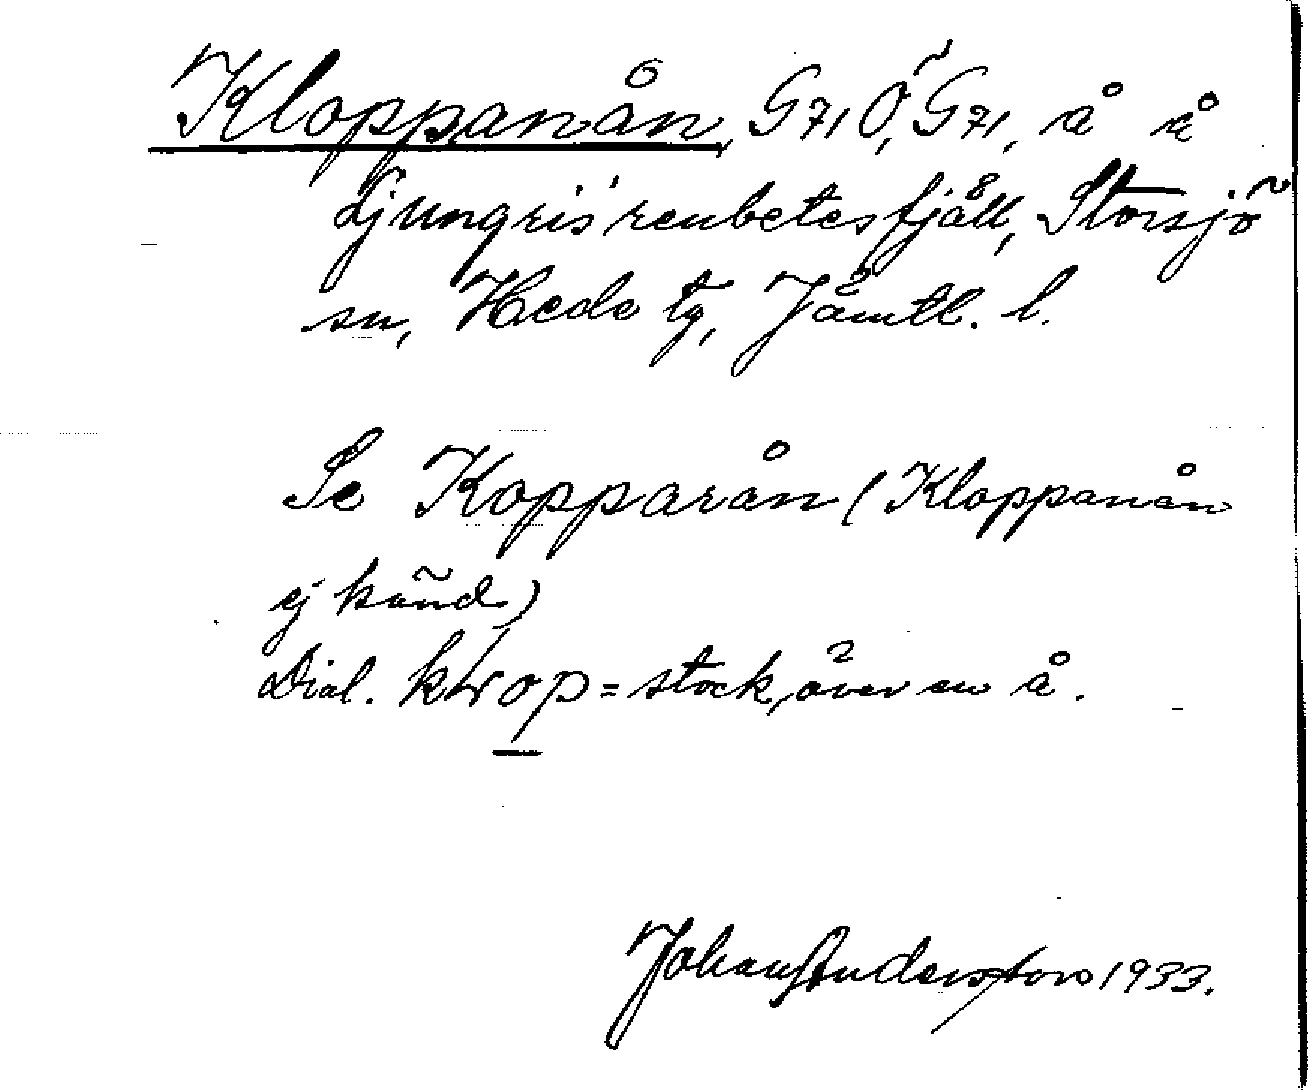 Kloppanån, G71Ö, G71, å å
Ljungris' renbetesfjäll, Storsjö
sn, Hede tg, Jämtl. l.
Se Kopparån (Kloppanån
ej känd)
Dial. = stock, över en å.
Johan Andersson 1933.